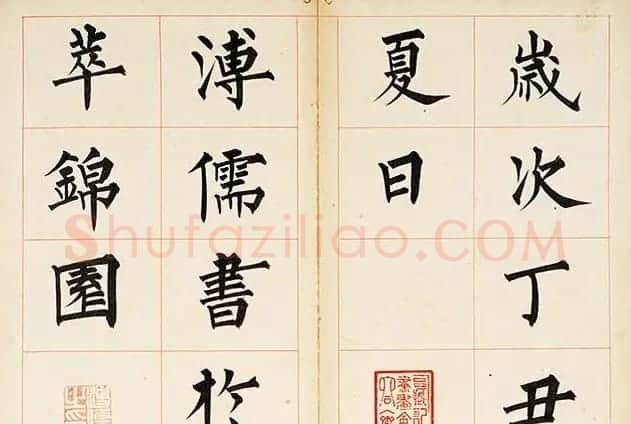 歲次丁丑
夏日
溥儒書於
萃錦園
Shufaziliao.COM